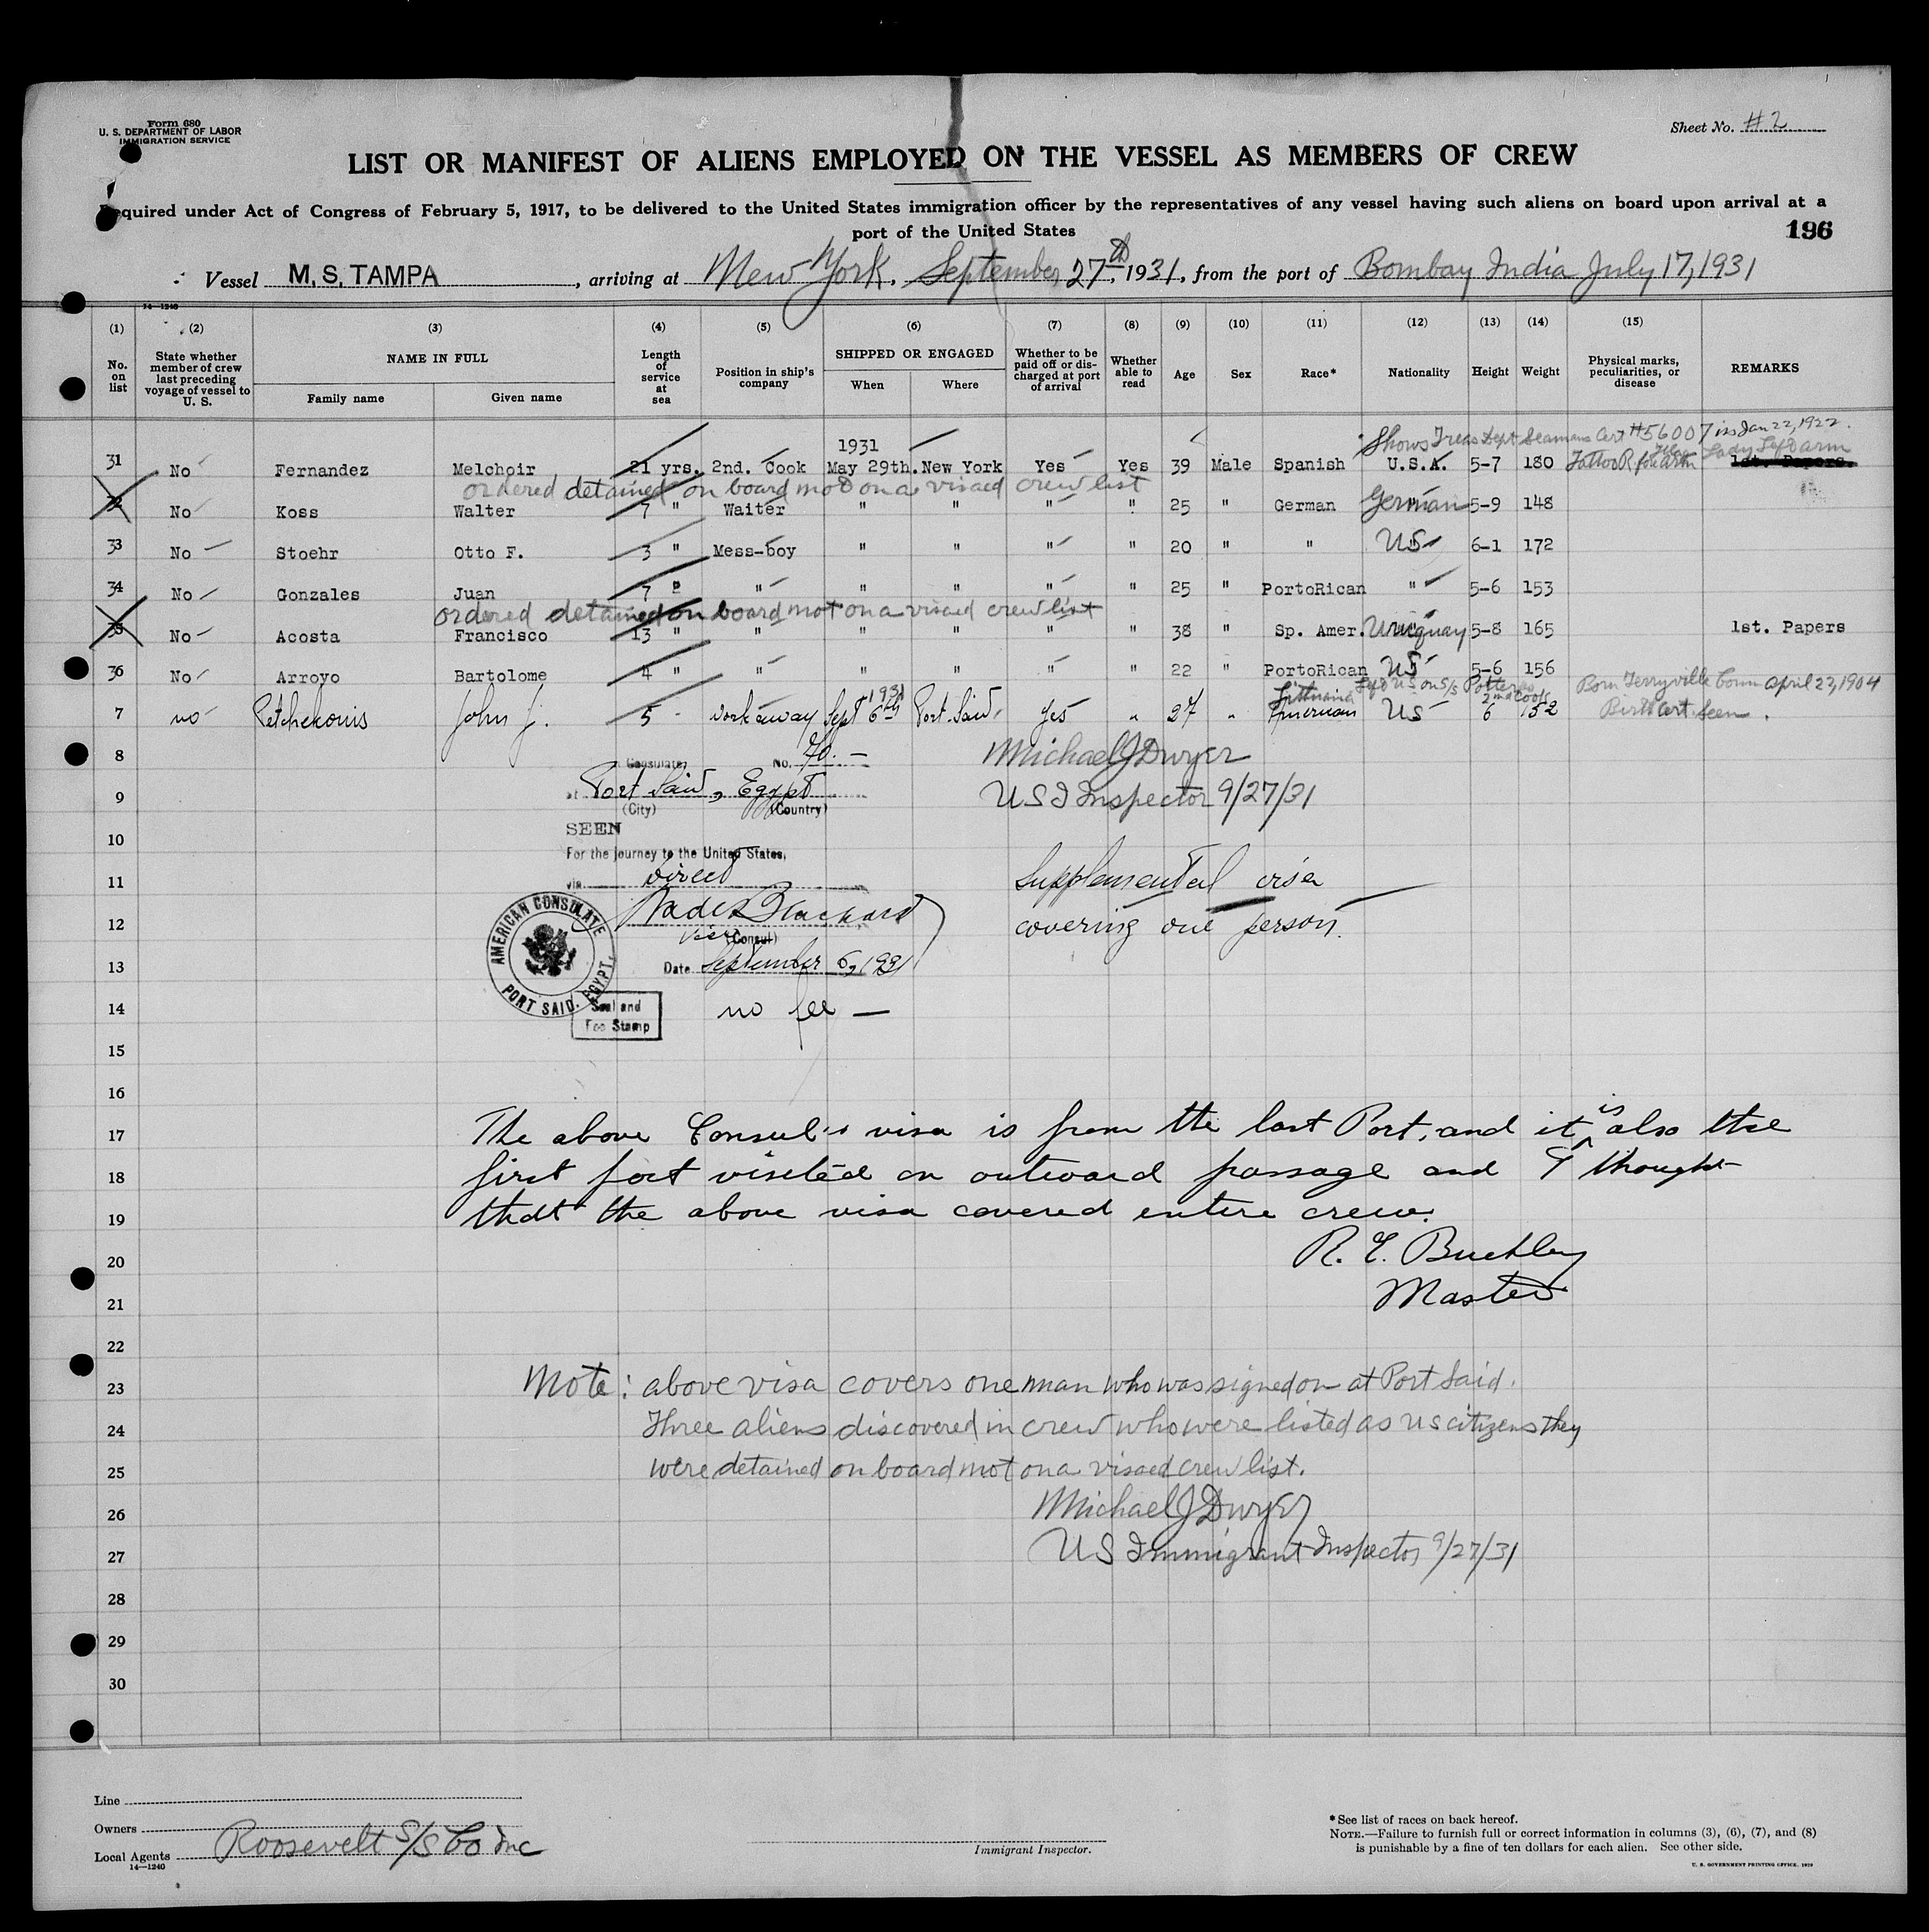 Form 680
U. S. DEPARTMENT OF LABOR
IMMIGRATION SERVICE
Sheet No. #2
LIST OR MANIFEST OF ALIENS EMPLOYED ON THE VESSEL AS MEMBERS OF CREW
Required under Act of Congress of February 5, 1917, to be delivered to the United States immigration officer by the representatives of any vessel having such aliens on board upon arrival at a
port of the United States
196
Vessel M. S. TAMPA, arriving at New York, September 27th, 1931, from the port of Bombay India July 17, 1931
14—1240
(1) (2) (3) (4) (5) (6) (7) (8) (9) (10) (11) (12) (13) (14) (15)
No. on list State whether member of crew last preceding voyage of vessel to U. S. NAME IN FULL Length of service at sea Position in ship's company SHIPPED OR ENGAGED Whether to be paid off or discharged at port of arrival Whether able to read Age Sex Race* Nationality Height Weight Physical marks, peculiarities, or disease REMARKS
Family name Given name When Where
Shows Treas Dept Seamans Cert #56007 iss Jan 22, 1922.
1931
31 No Fernandez Melchoir 21 yrs. 2nd. Cook May 29th. New York Yes Yes 39 Male Spanish U.S.A. 5-7 180 Tattoo R. fore arm Lady Left arm 1st. Papers.
ordered detained on board not on a visaed crew list
No Koss Walter 7 " Waiter " " " " 25 " German German 5-9 148
33 No Stoehr Otto F. 3 " Mess-boy " " " " 20 " " US 6-1 172
34 No Gonzales Juan 7 " " " " " " 25 " PortoRican " 5-6 153
ordered detained on board not on a visaed crew list
35 No Acosta Francisco 13 " " " " " " 38 " Sp. Amer. Uruguay 5-8 165 1st. Papers
36 No Arroyo Bartolome 4 " " " " " " 22 " PortoRican US 5-6 156
Lithuania Left US on S/S Potter as 2nd Cook Born Terryville Conn April 23, 1904
7 no Petchekonis John J. 5 workaway Sept 6th 1931 Port Said, Yes " 27 " American US 6 152 Birth Cert. Seen.
8 Consulate, No. 70.— Michael J Dwyer
9 at Port Said, Egypt U S I Inspector 9/27/31
(City) (Country)
10 SEEN
For the journey to the United States,
11 via direct Supplemental visa
12 covering one person.
Vice (Consul)
13 Date September 6, 1931
AMERICAN CONSULATE
PORT SAID, EGYPT.
14 Seal and Fee Stamp no fee —
15
16
17 The above Consul's visa is from the last Port, and it is also the
18 first port visited on outward passage and I thought
19 that the above visa covered entire crew.
20 R. E. Buckley
21 Master
22
23 Note: above visa covers one man who was signed on at Port Said.
24 Three aliens discovered in crew who were listed as US citizens they
25 were detained on board not on a visaed crew list.
26 Michael J Dwyer
27 US Immigrant Inspector 9/27/31
28
29
30
Line
Owners
Local Agents Roosevelt S/S Co Inc
14—1240
Immigrant Inspector.
*See list of races on back hereof.
NOTE.—Failure to furnish full or correct information in columns (3), (6), (7), and (8)
is punishable by a fine of ten dollars for each alien. See other side.
U. S. GOVERNMENT PRINTING OFFICE. 1929